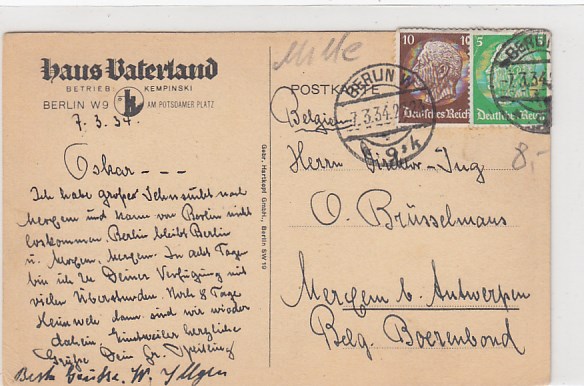 Haus Vaterland
BETRIEB: KEMPINSKI
BERLIN W9 K AM POTSDAMER PLATZ
7.3.34.
Oskar – – –
Ich habe große Sehnsucht nach
Mergem und kann von Berlin nicht
loskommen. Berlin bleibt Berlin
u. Mergem, Mergem. In acht Tage
bin ich zu Deiner Verfügung mit
vielen Überstunden. Noch 8 Tage
Heimweh dann sind wir wieder
daheim. Einstweilen herzliche
Grüße Dein Fr.
Beste Grüße, W. Illgen
Gebr. Hartkopf GmbH., Berlin SW 19
POSTKARTE
Belgien
10 10
Deutsches Reich
5
Deutsches Reich
BERLIN W
7.3.34.
9 h
BERLIN
7.3.34.
8,-
Herrn Direktor-Ing
O. Brüsselmans
Mergem b. Antwerpen
Belg. Boerenbond